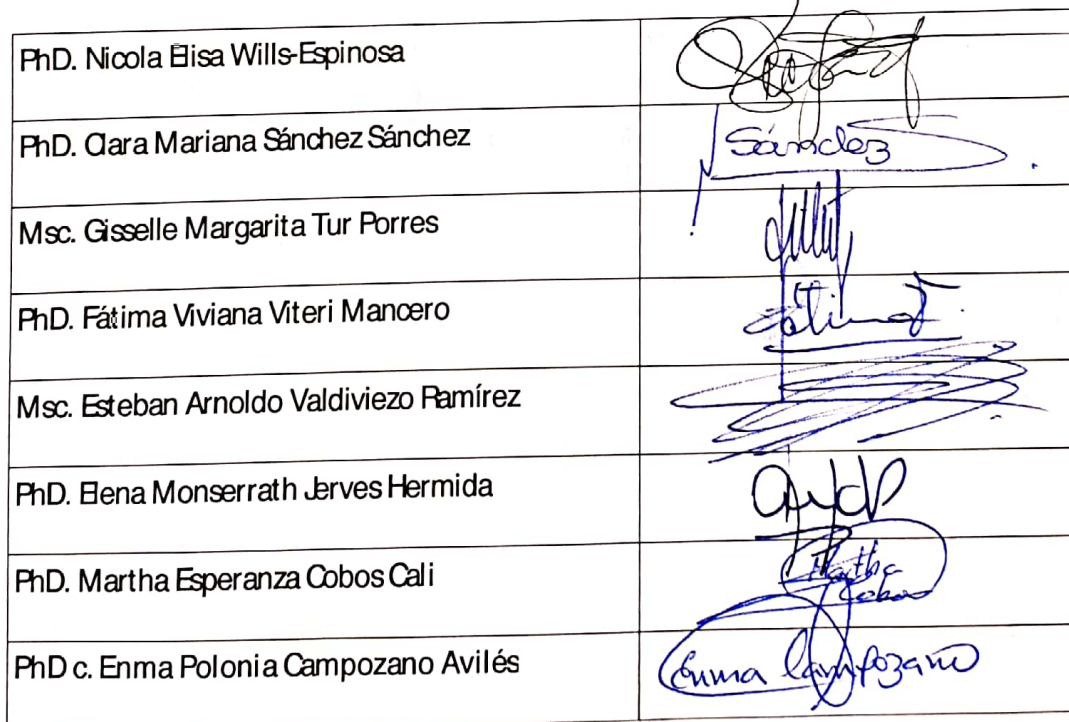 PhD. Nicola Elisa Wills-Espinosa
PhD. Clara Mariana Sánchez Sánchez
Sánchez
Msc. Gisselle Margarita Tur Porres
PhD. Fátima Viviana Viteri Mancero
Fátima
Msc. Esteban Arnoldo Valdiviezo Ramírez
PhD. Elena Monserrath Jerves Hermida
PhD. Martha Esperanza Cobos Cali
Martha
Cobos
PhD c. Enma Polonia Campozano Avilés
Enma Campozano